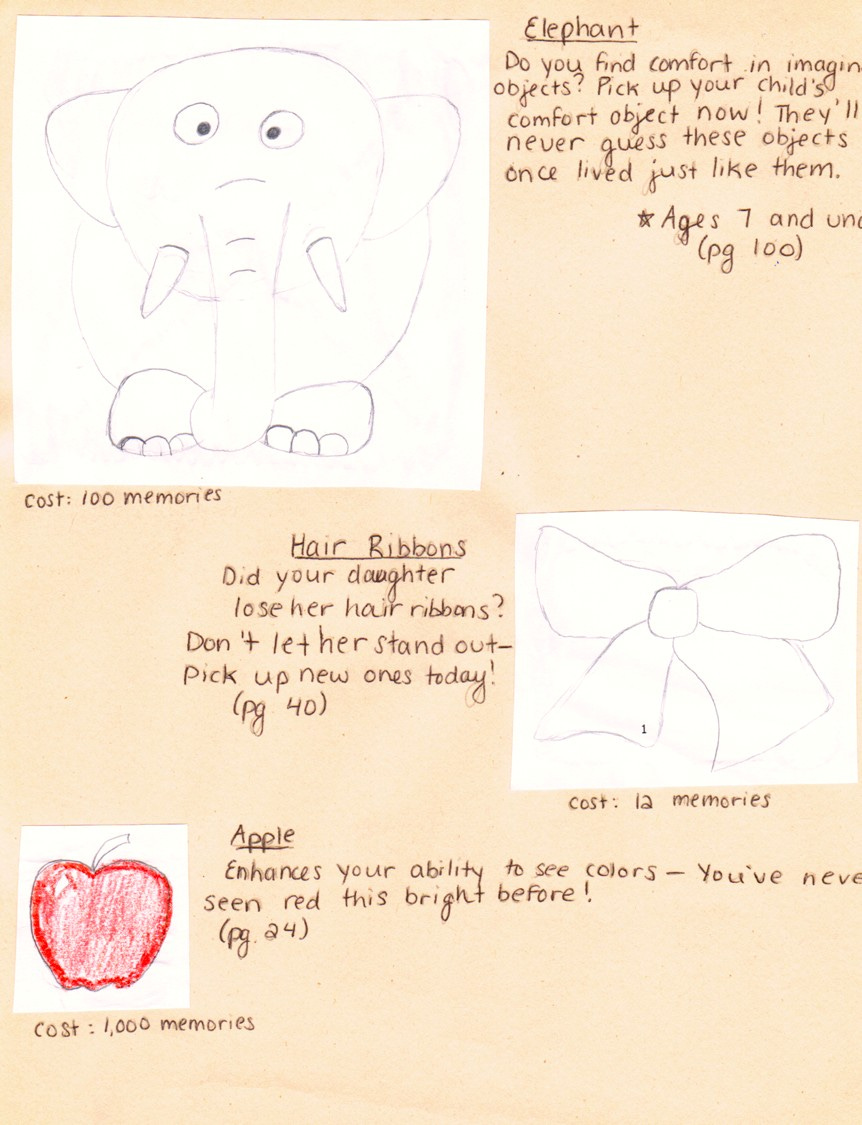 Elephant
Do you find comfort in imagin
objects? Pick up your child's
comfort object now! They'll
never guess these objects
once lived just like them.
* Ages 7 and und
(pg 100)
cost: 100 memories
Hair Ribbons
Did your daughter
lose her hair ribbons?
Don't let her stand out-
Pick up new ones today!
(pg 40)
1
cost: 12 memories
Apple
Enhances your ability to see colors - You've neve
seen red this bright before!
(pg. 24)
cost: 1,000 memories